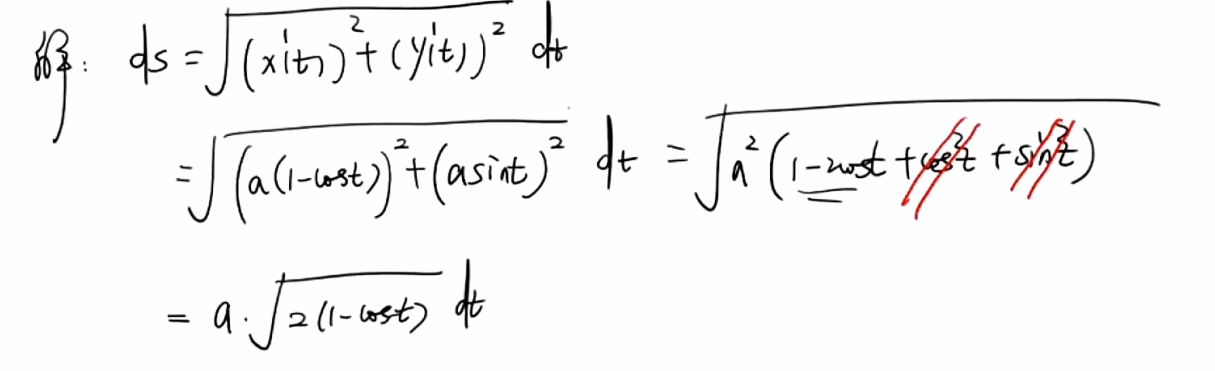 解: ds = √((x'(t))² + (y'(t))²) dt
= √((a(1-cost))² + (asint)²) dt = √(a²(1-2cost + cos²t + sin²t))
= a·√(2(1-cost)) dt